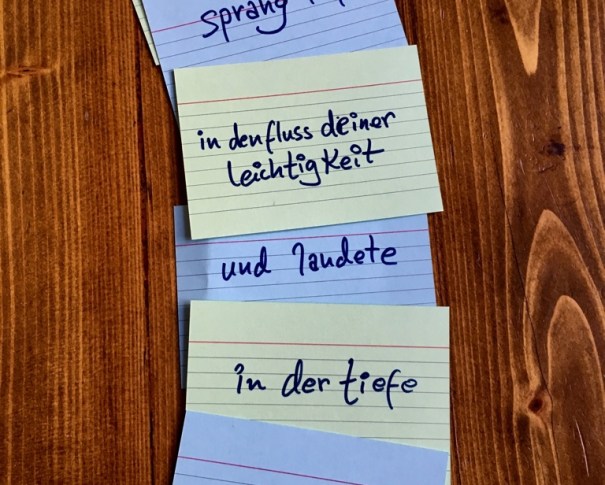 sprang
in den fluss deiner
leichtigkeit
und landete
in der tiefe